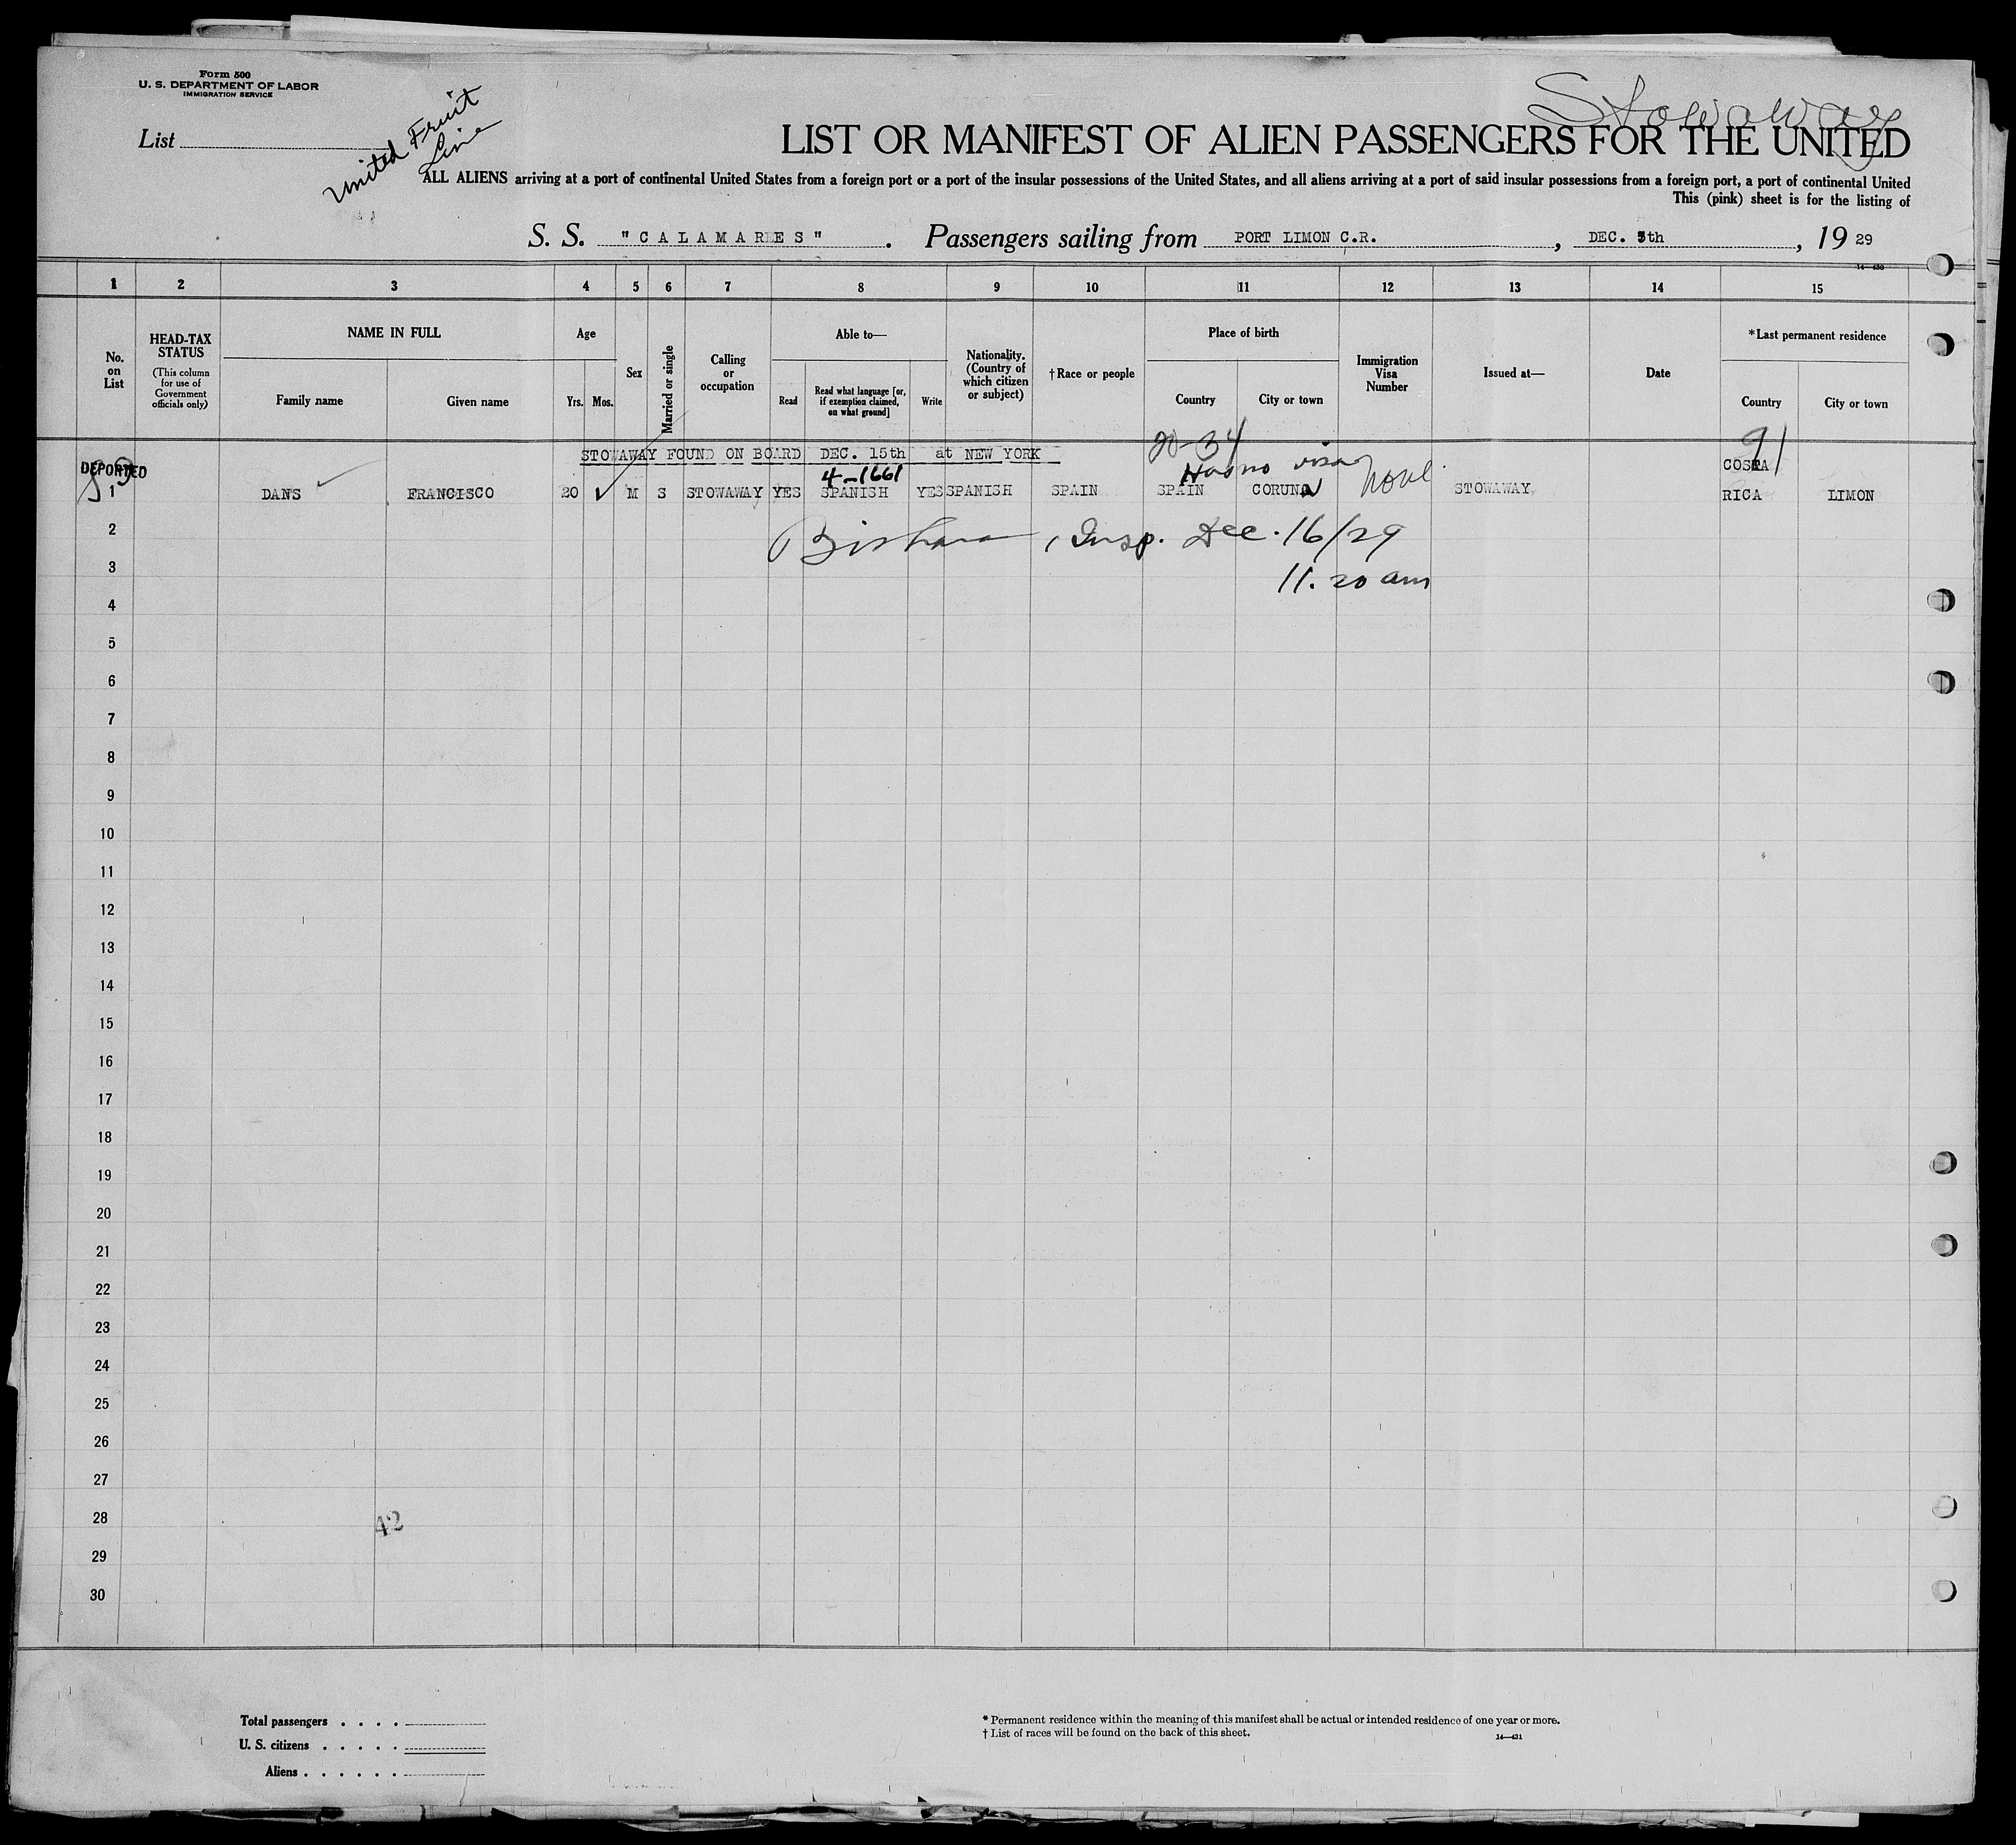 Form 500
U. S. DEPARTMENT OF LABOR
IMMIGRATION SERVICE
List
United Fruit
Line
Stowaway
LIST OR MANIFEST OF ALIEN PASSENGERS FOR THE UNITED
ALL ALIENS arriving at a port of continental United States from a foreign port or a port of the insular possessions of the United States, and all aliens arriving at a port of said insular possessions from a foreign port, a port of continental United
This (pink) sheet is for the listing of
S. S. "CALAMARES". Passengers sailing from PORT LIMON C.R., DEC. 5th, 19 29
14—430
1 2 3 4 5 6 7 8 9 10 11 12 13 14 15
No. on List
HEAD-TAX STATUS
(This column for use of Government officials only)
NAME IN FULL
Family name
Given name
Age
Yrs. Mos.
Sex
Married or single
Calling or occupation
Able to—
Read
Read what language [or, if exemption claimed, on what ground]
Write
Nationality. (Country of which citizen or subject)
†Race or people
Place of birth
Country
City or town
Immigration Visa Number
Issued at—
Date
*Last permanent residence
Country
City or town
20-34
91
STOWAWAY FOUND ON BOARD DEC. 15th at NEW YORK
DEPORTED
4-1661
Has no visa
None
1 DANS FRANCISCO 20 M S STOWAWAY YES SPANISH YES SPANISH SPAIN SPAIN CORUNA STOWAWAY COSTA RICA LIMON
2
, Insp. Dec. 16/29
3
11.20 am
4
5
6
7
8
9
10
11
12
13
14
15
16
17
18
19
20
21
22
23
24
25
26
27
28
42
29
30
Total passengers . . . .
U. S. citizens . . . . .
Aliens . . . . . .
* Permanent residence within the meaning of this manifest shall be actual or intended residence of one year or more.
† List of races will be found on the back of this sheet.
14—431